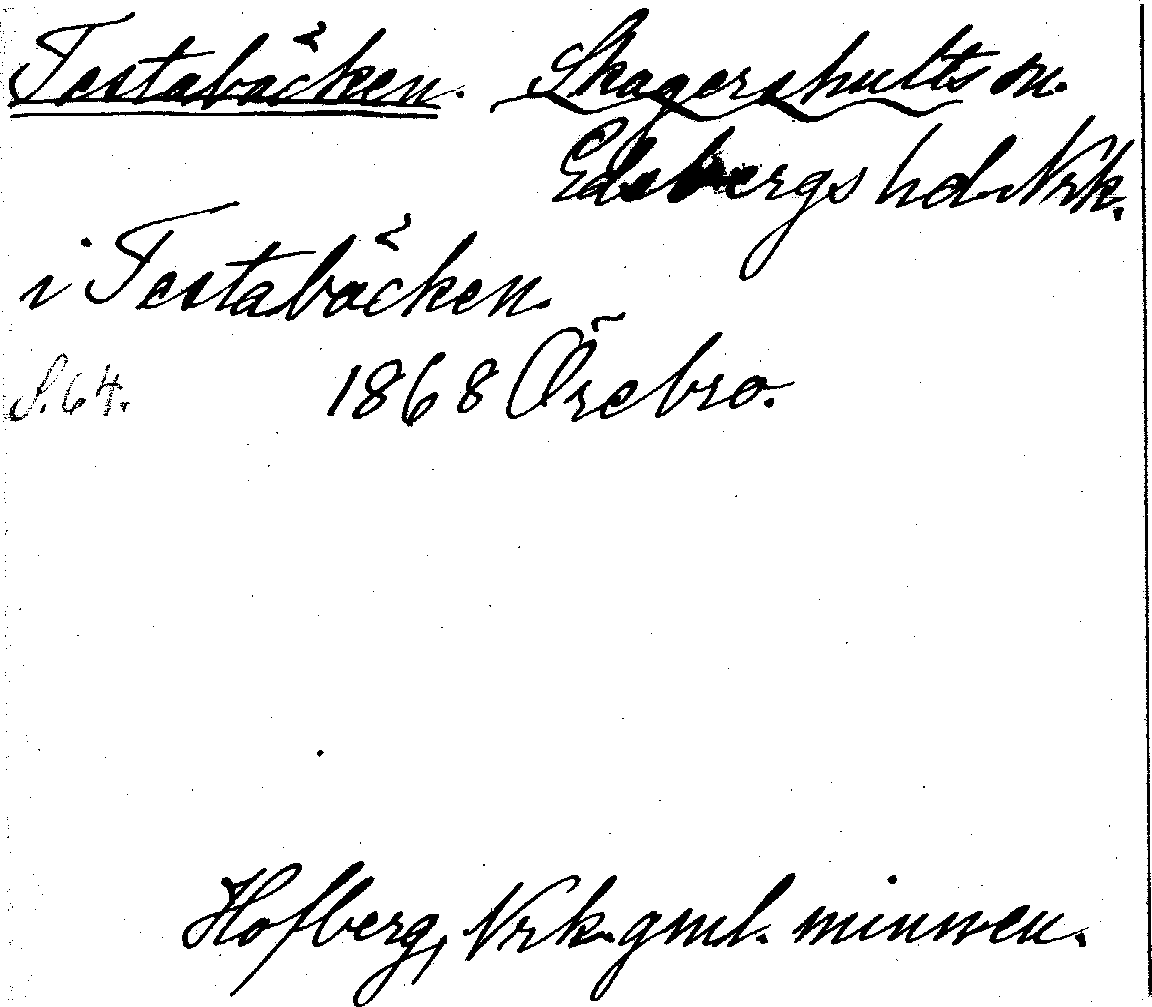 Testabäcken. Skagershults sn.
Edsbergs hd. Nrk.
i Testabäcken.
S. 64. 1868 Örebro.
Hofberg, Nrk. gml. minnen.